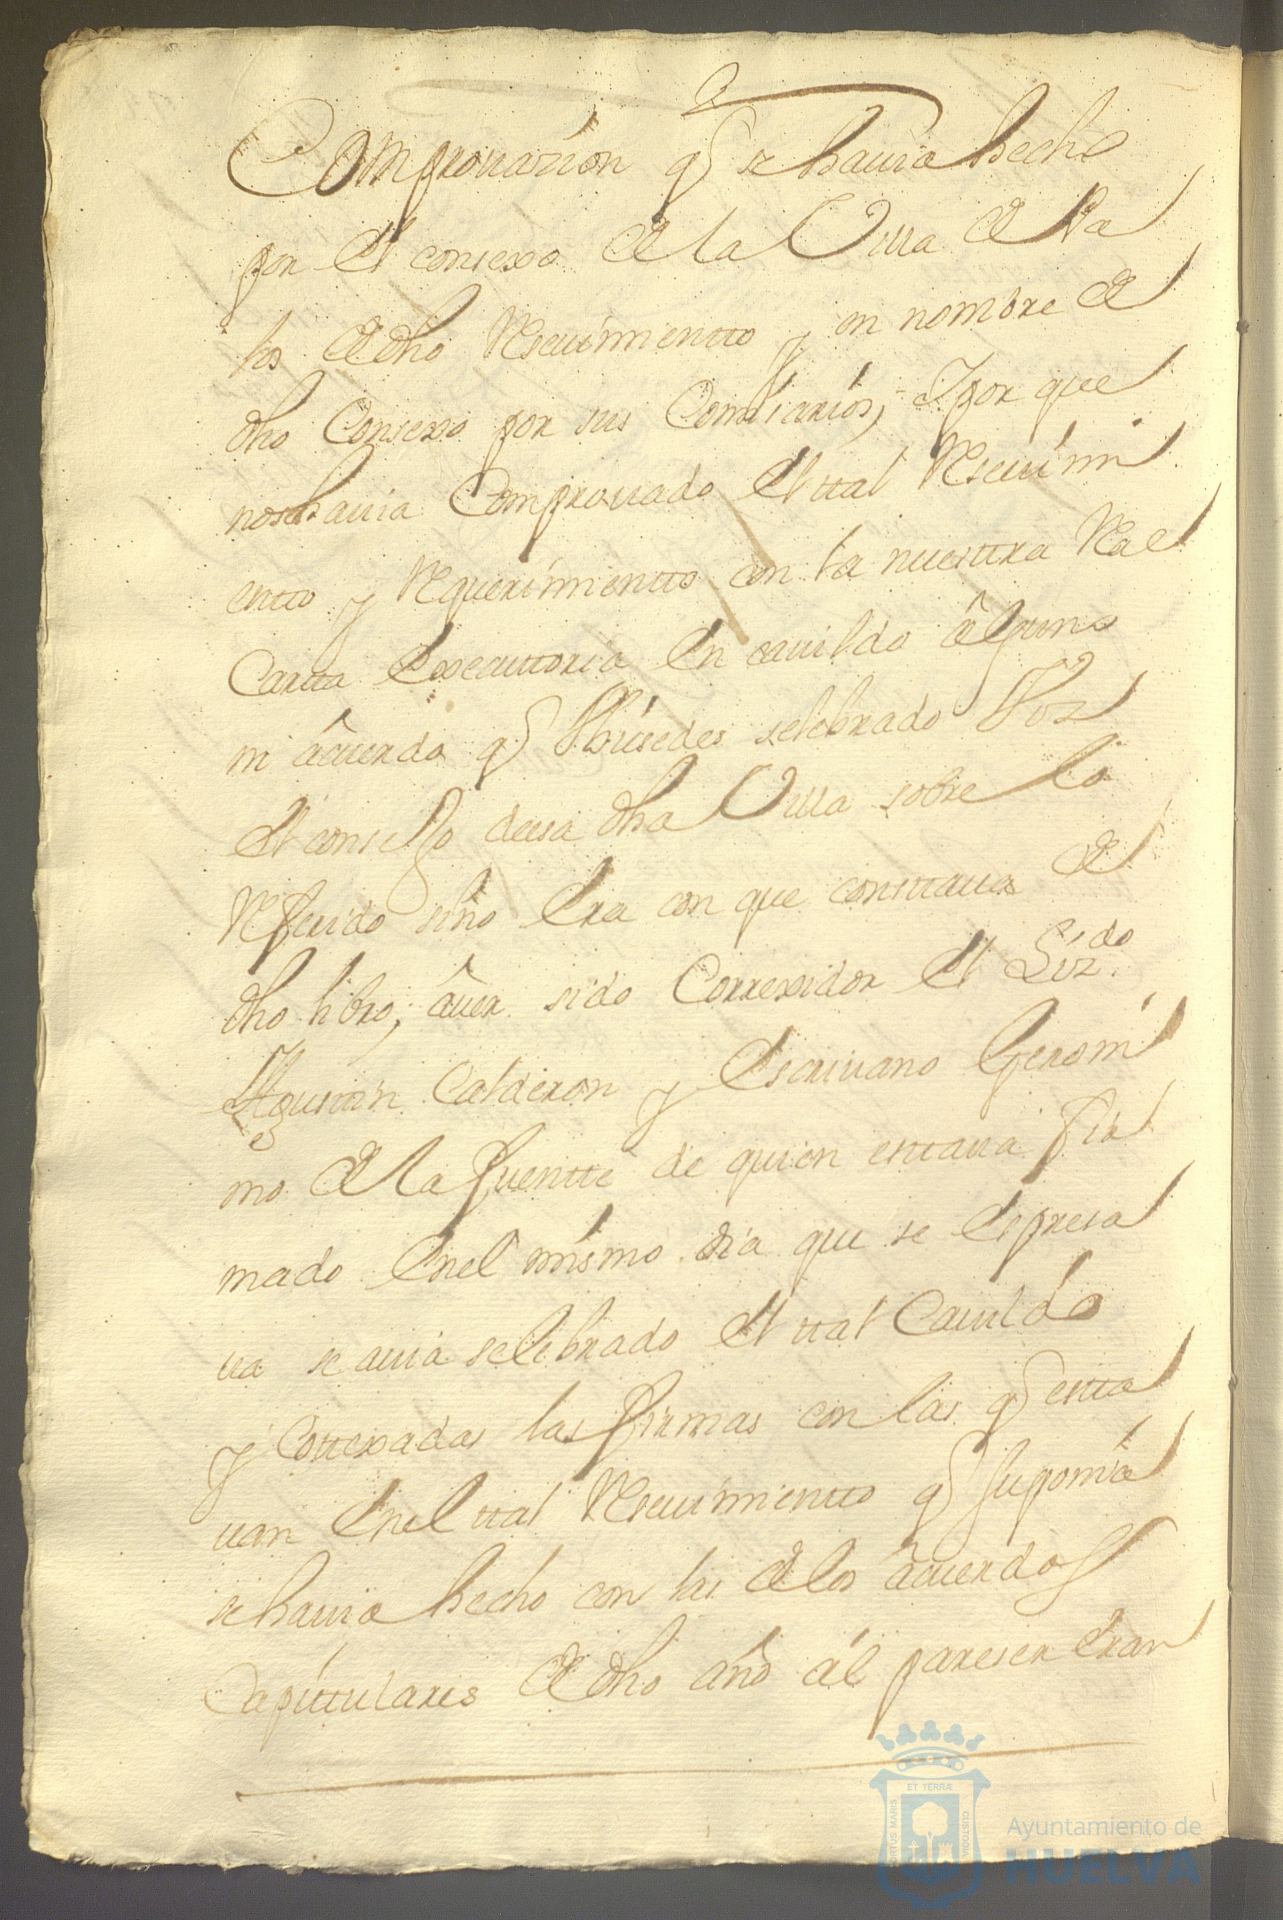 Comprovazion q̃ se havia hecho
por el consexo de la Villa de Pa
los de dho Reseuimientto y en nombre de
dho Consexo por sus Comisarios, Y por que
no se havia Comprouado el ttal Reseuimi
entto y Requerimientto con la nuesttra Real
Cartta Executtoria En cauildo âlguno
ni âcuerdo q̃ hubiesedes selebrado Vos
el consejo desa dha Villa sobre lo
Referido sino Era con que consttaua de
dho libro, âuer sido Correxidor el Liz.do
Agusttin Calderon y Escriuano Geroni
mo de la Fuentte de quien esttaua fir
mado Enel mismo dia que se Espresa
ua se auia selebrado el ttal Cauildo
y Cottexadas las firmas con las q̃ estta
uan Enel ttal Reseuimientto q̃ suponia
se hauia hecho con las de los âcuerdos
Capittulares de dho año âl pareser Eran
ET TERRÆ
PORTUS MARIS
CUSTODIA
Ayuntamiento de
HUELVA